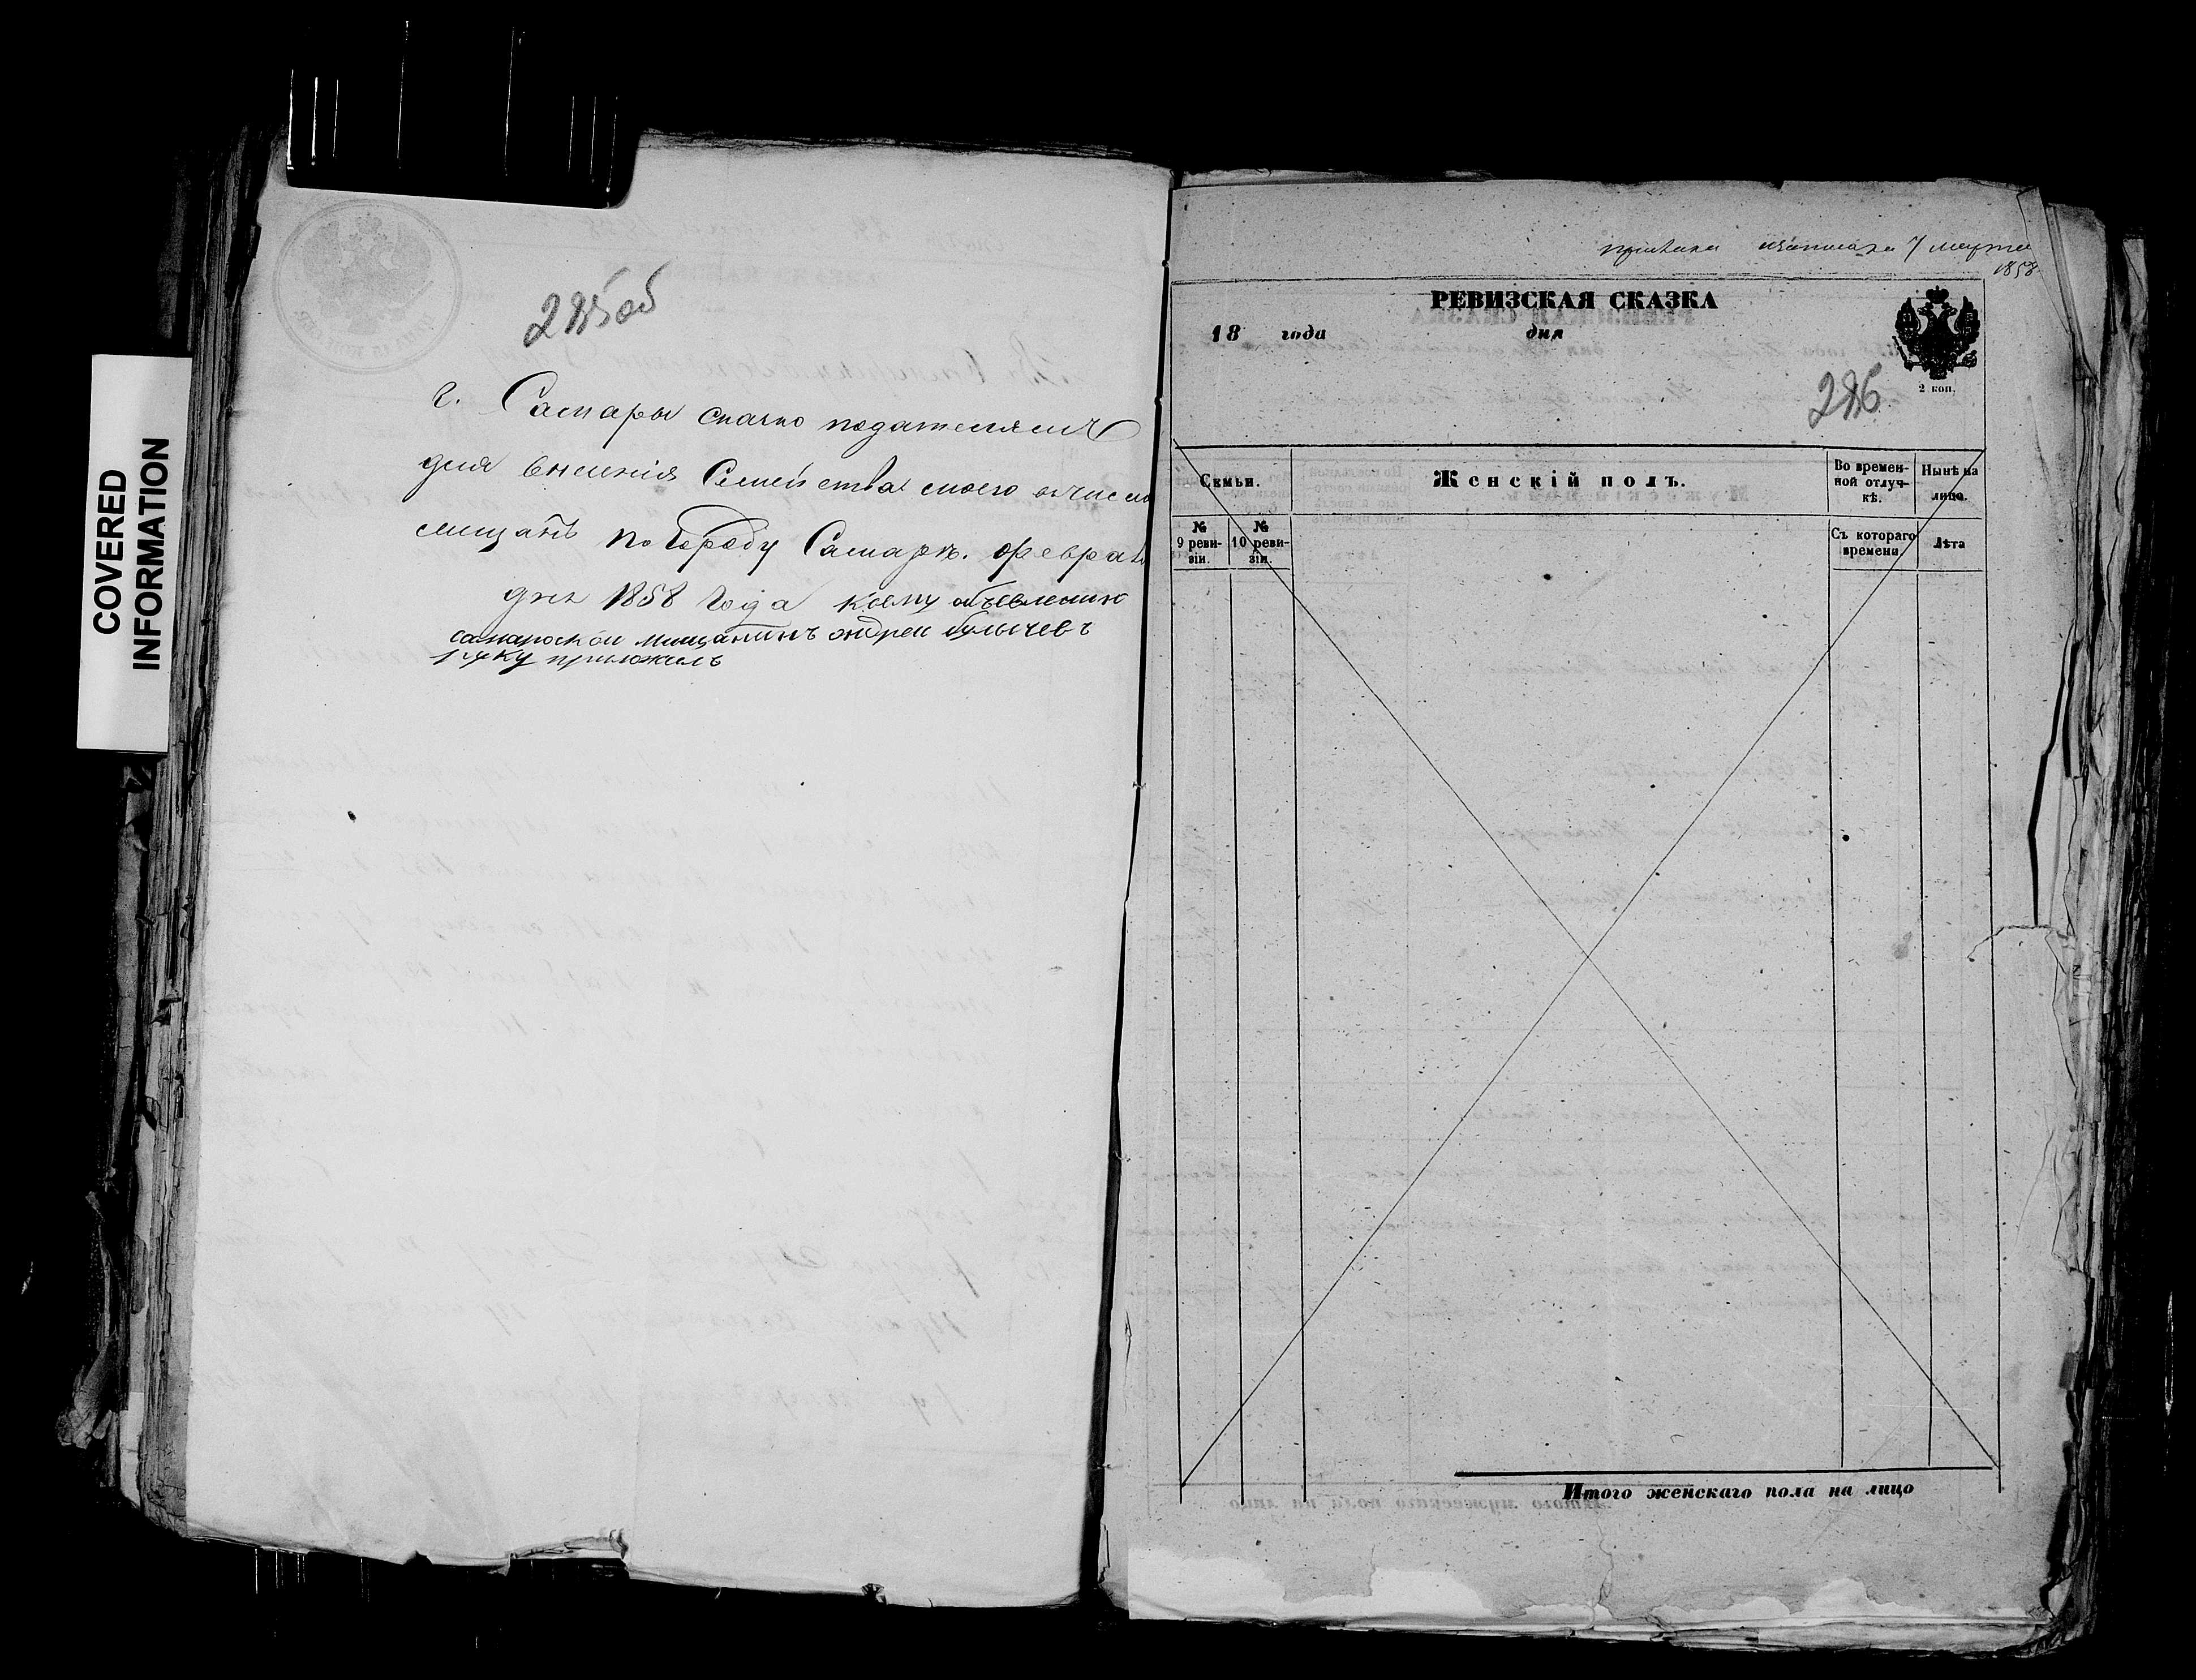 COVERED
INFORMATION
285 об
г. Самары сказко подателямъ
для внесенія Семейства моего вчисло
мищанъ по Городу Самаръ. Февраля
дня 1858 Года Ксему объевленію
самарской мищанинъ андреи булычевъ
руку приложилъ
7 марта
1858
РЕВИЗСКАЯ СКАЗКА
18 года дня
2 коп.
286
Семьи.
Женскій полъ.
Во времен-
ной отлуч-
кѣ.
Нынѣ на
лицо.
№
9 реви-
зіи.
№
10 реви-
зіи.
Съ котораго
времени.
Лѣта
Итого женскаго пола на лицо